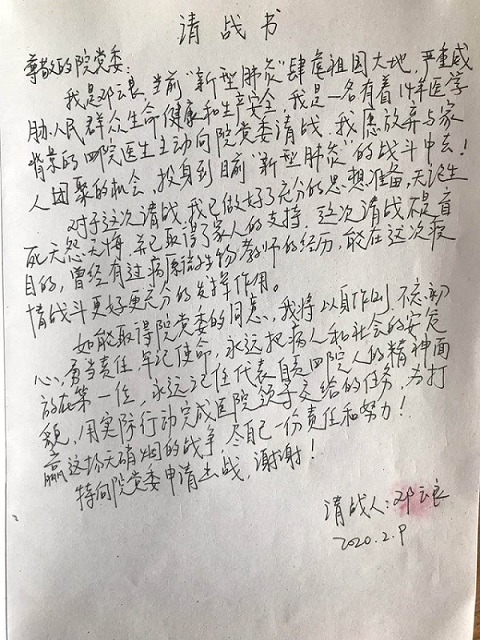 请战书
尊敬的院党委:
我是邓云良,当前"新型肺炎"肆虐祖国大地,严重威
胁人民群众生命健康和生产安全,我是一名有着14年医学
背景的四院医生主动向院党委请战,我愿放弃与家
人团聚的机会,投身到目前"新型肺炎"的战斗中去!
对于这次请战,我已做好了充分的思想准备,无论生
死无怨无悔,并已取得了家人的支持,这次请战不是盲
目的,曾经有过病原微生物教师的经历,能在这次疫
情战斗更好更充分的发挥作用。
如能取得院党委的同意,我将以身作则,不忘初
心,勇当责任,牢记使命,永远把病人和社会的安危
放在第一位,永远记住代表自贡四院人的精神面
貌,用实际行动完成医院领导交给的任务,为打
赢这场无硝烟的战争,尽自己一份责任和努力!
特向院党委申请出战,谢谢!
请战人:邓云良
2020.2.9